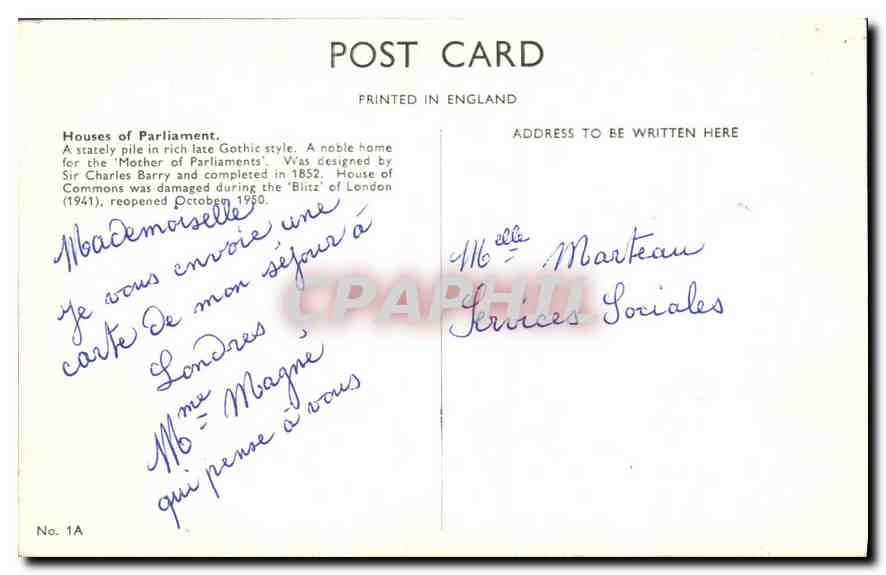 POST CARD
PRINTED IN ENGLAND
Houses of Parliament.
A stately pile in rich late Gothic style. A noble home
for the 'Mother of Parliaments'. Was designed by
Sir Charles Barry and completed in 1852. House of
Commons was damaged during the 'Blitz' of London
(1941), reopened October, 1950.
ADDRESS TO BE WRITTEN HERE
Mademoiselle
Je vous envoie une
carte de mon séjour à
Londres
Mme Magné
qui pense à vous
Melle Marteau
Services Sociales
CPAPHIL
No. 1A